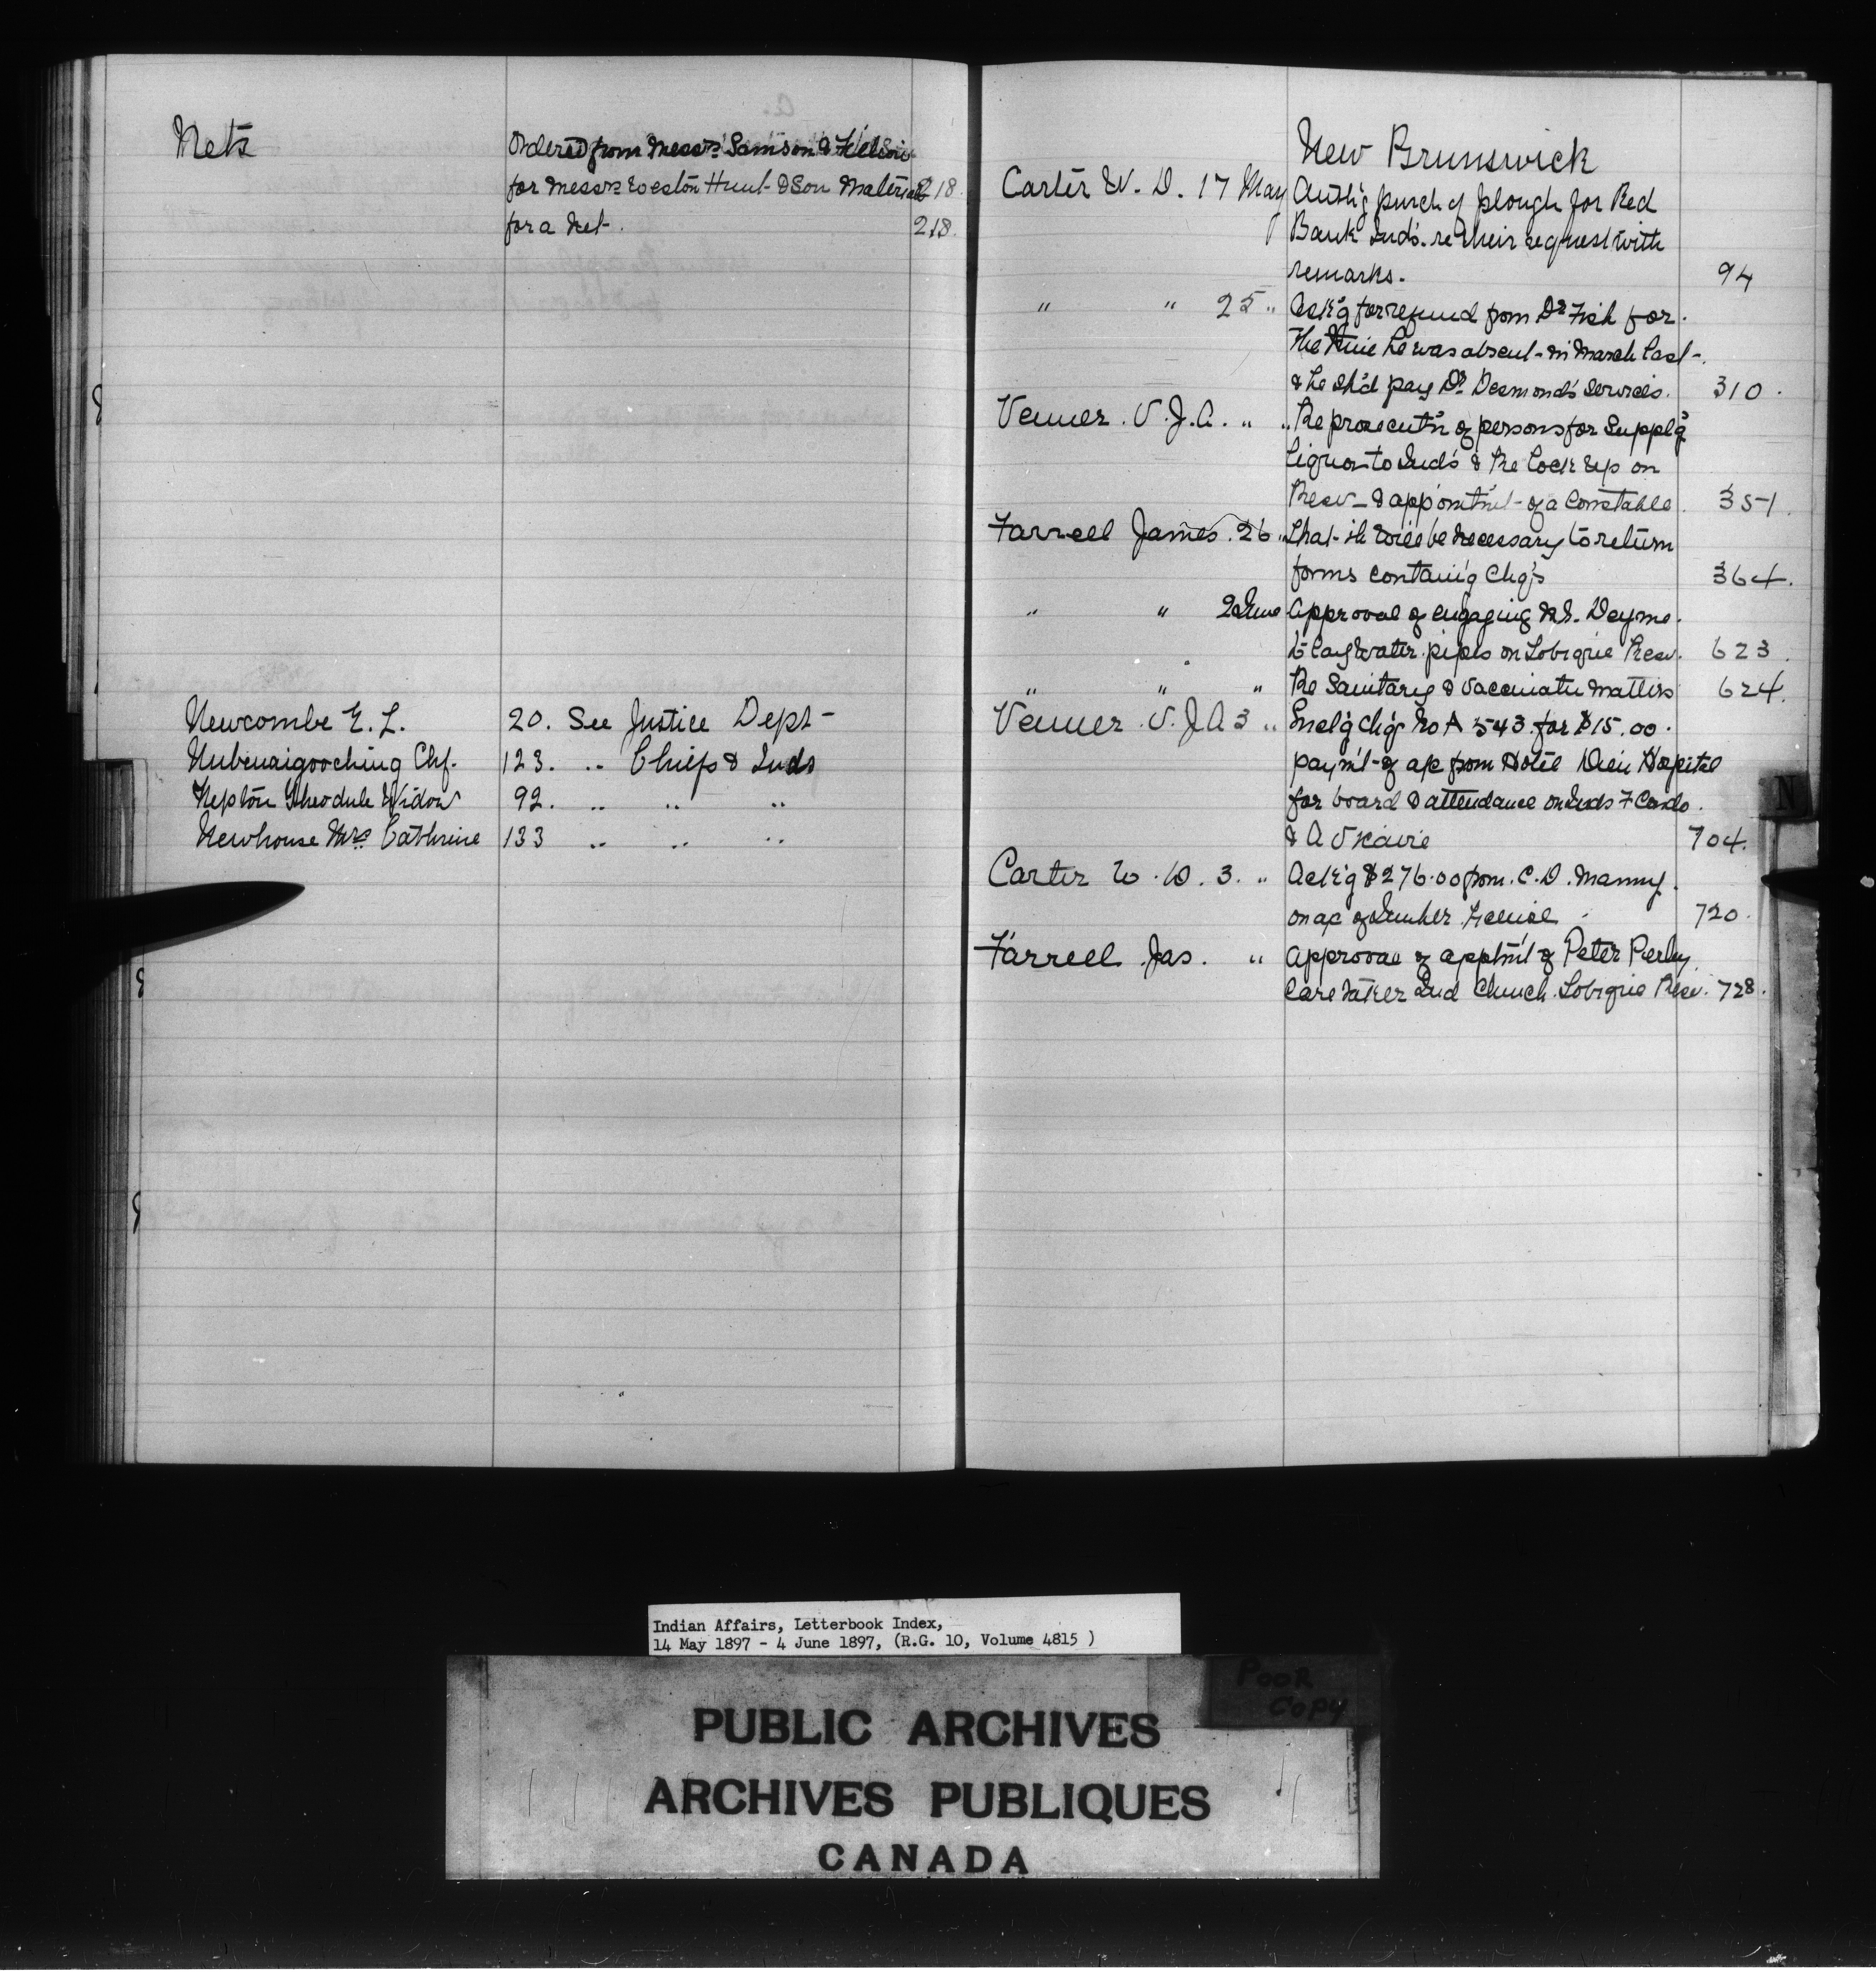 Nets
Ordered from Messrs Samson & Filion
for Messrs Weston Hunt & Son Material 218
for a Net. 218.
Newcombe E. L. 20. See Justice Dept
Nubenaigooching Chf. 123. " Chiefs & Inds
Neptôn Theodule Widow 92. " " "
Newhouse Mrs. Cathrine 133 " " "
New Brunswick
Carter W. D. 17 May Auth'g purch of plough for Red
Bank Ind's. re their request with
remarks. 94
" " 25 " Ack'g for refund from Dr Fish for
the time he was absent in March last
& he sh'd pay Dr Desmond's services. 310.
Venner. V. J. A. " " Re prosecut'n of persons for Suppl'g
liquor to Ind's & Re Lock up on
Resv & appointm't of a Constable. 351.
Farrell James. 26 " That it will be necessary to return
forms containi'g Chq's 364.
" " 2 June Approval of engaging
to lay water pipes on Tobique Resv. 623.
" " " Re Sanitary & Vaccinat'n matters 624.
Venner. V. J. A 3 " Incl'g Chq No A 543 for $15.00.
paym't of a/c from Hotel Dieu Hospital
for board & attendance on Inds F Condo.
& A Vicaire 704.
Carter W. D. 3. " Ack'g $276.00 from. C. D. Manny.
on a/c of Timber License 720.
Farrell Jas. " Approval of apptm't of Peter Perley
Caretaker Ind Church. Tobique Resv. 728.
N
Indian Affairs, Letterbook Index,
14 May 1897 - 4 June 1897, (R.G. 10, Volume 4815 )
POOR
COPY
PUBLIC ARCHIVES
ARCHIVES PUBLIQUES
CANADA